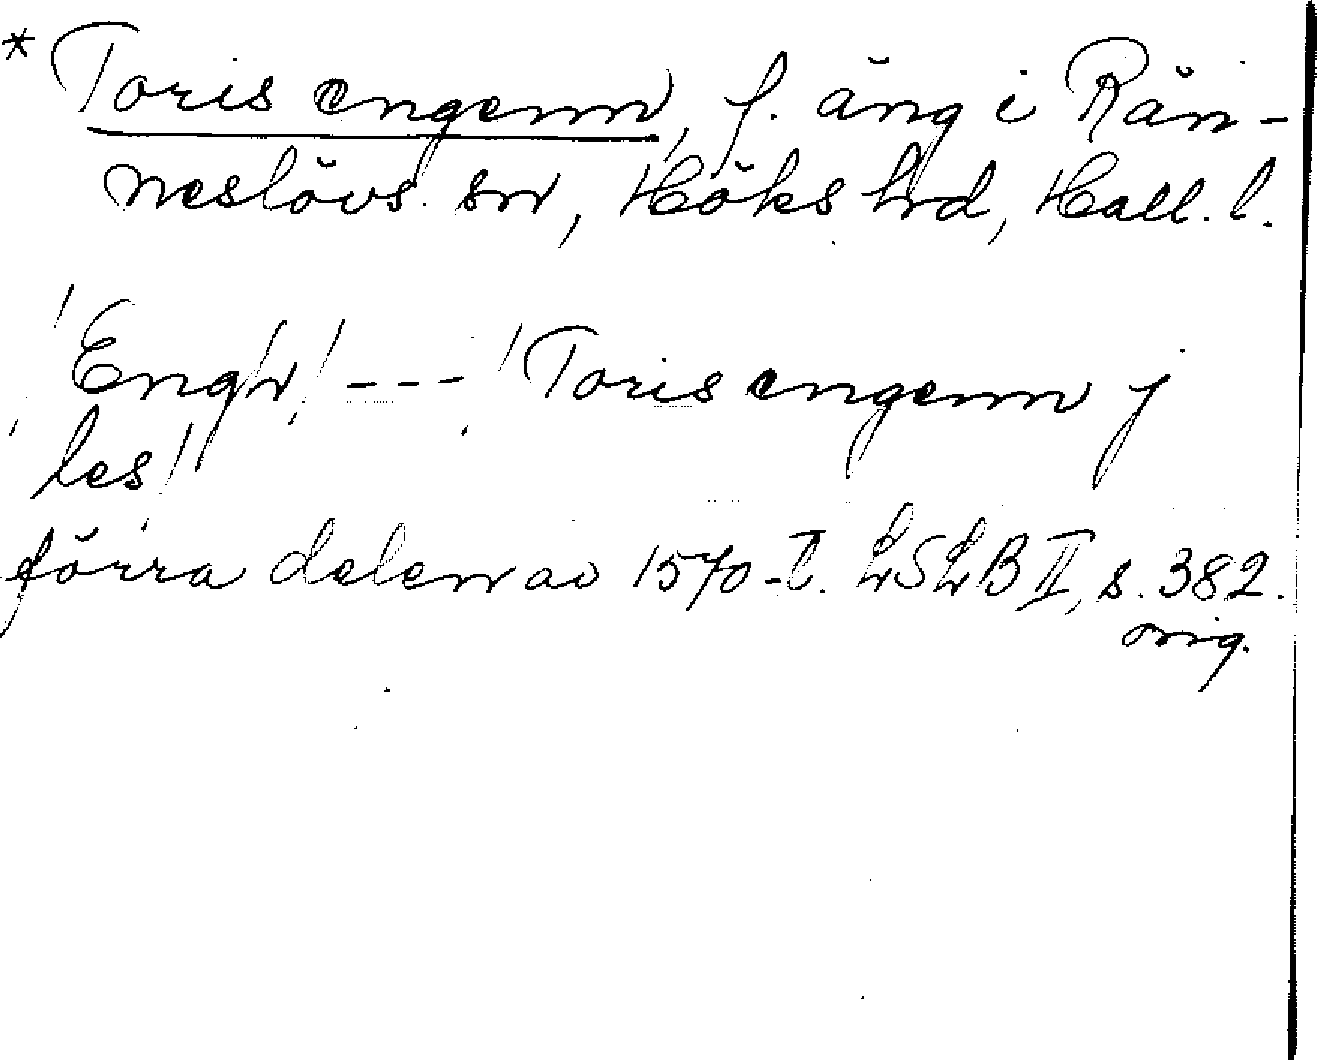 * Toris engenn, f. äng i Rän-
neslövs sn, Höks hrd, Hall. l.
/Engh/ --- /Toris engenn j
les/
förra delen av 1570-t. LSLB II, s. 382.
orig.